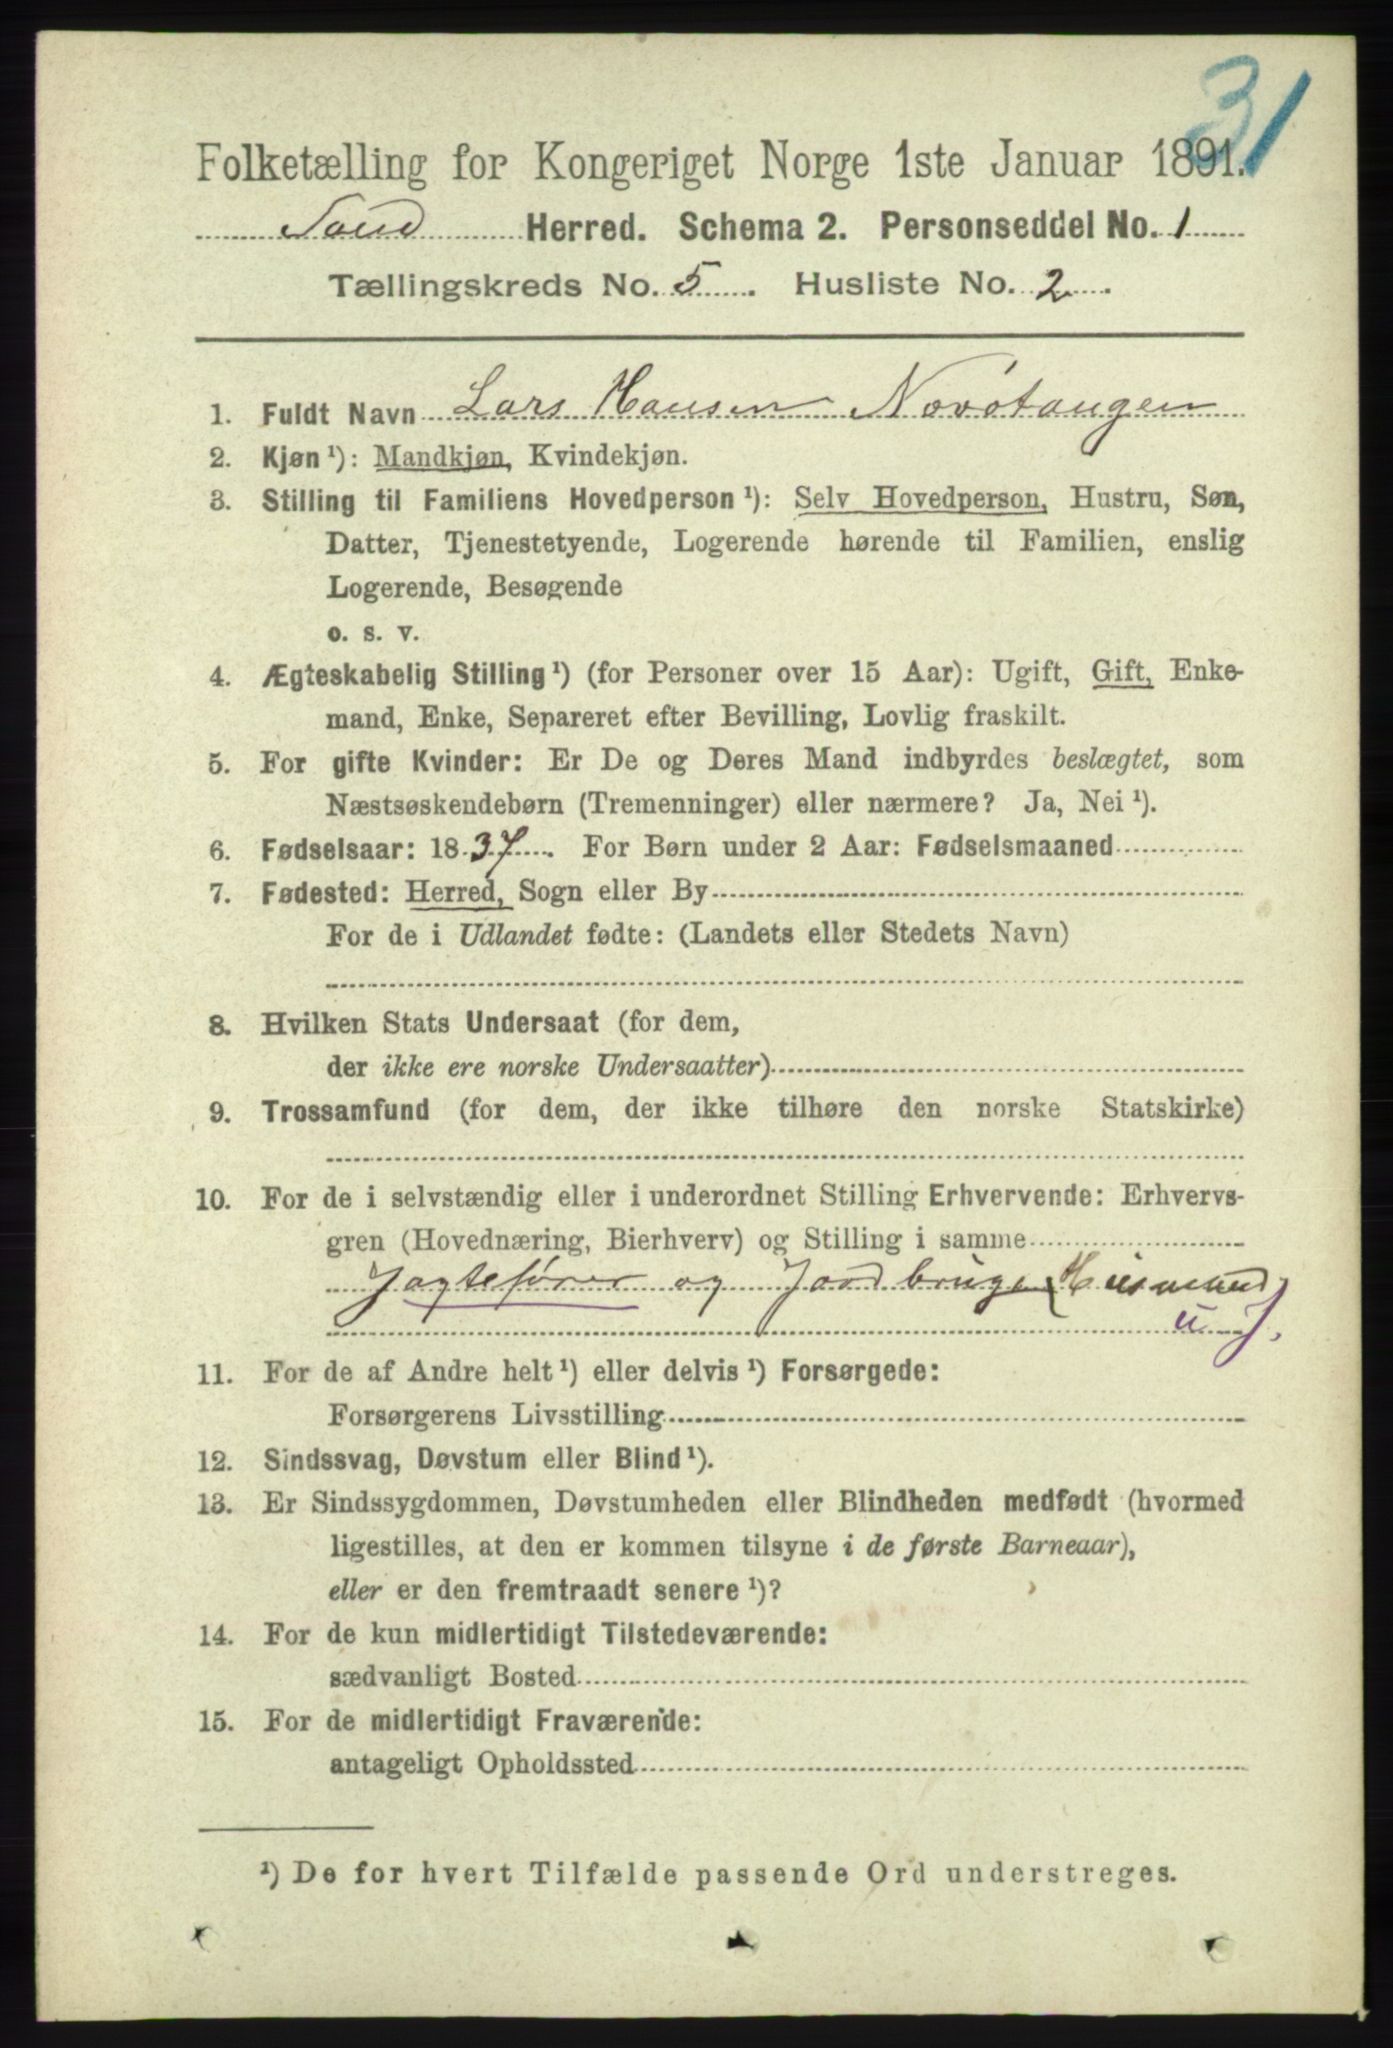 31
Folketælling for Kongeriget Norge 1ste Januar 1891.
Sand Herred. Schema 2. Personseddel No. 1
Tællingskreds No. 5. Husliste No. 2.
1. Fuldt Navn Lars Hansen Novøtangen
2. Kjøn ¹): Mandkjøn, Kvindekjøn.
3. Stilling til Familiens Hovedperson ¹): Selv Hovedperson, Hustru, Søn,
Datter, Tjenestetyende, Logerende hørende til Familien, enslig
Logerende, Besøgende
o. s. v.
4. Ægteskabelig Stilling ¹) (for Personer over 15 Aar): Ugift, Gift, Enke-
mand, Enke, Separeret efter Bevilling, Lovlig fraskilt.
5. For gifte Kvinder: Er De og Deres Mand indbyrdes beslægtet, som
Næstsøskendebørn (Tremenninger) eller nærmere? Ja, Nei ¹).
6. Fødselsaar: 1837. For Børn under 2 Aar: Fødselsmaaned
7. Fødested: Herred, Sogn eller By
For de i Udlandet fødte: (Landets eller Stedets Navn)
8. Hvilken Stats Undersaat (for dem,
der ikke ere norske Undersaatter)
9. Trossamfund (for dem, der ikke tilhøre den norske Statskirke)
10. For de i selvstændig eller i underordnet Stilling Erhvervende: Erhvervs-
gren (Hovednæring, Bierhverv) og Stilling i samme
Jagtefører og Jordbruger (Husmand
u J.
11. For de af Andre helt ¹) eller delvis ¹) Forsørgede:
Forsørgerens Livsstilling
12. Sindssvag, Døvstum eller Blind ¹).
13. Er Sindssygdommen, Døvstumheden eller Blindheden medfødt (hvormed
ligestilles, at den er kommen tilsyne i de første Barneaar),
eller er den fremtraadt senere ¹)?
14. For de kun midlertidigt Tilstedeværende:
sædvanligt Bosted
15. For de midlertidigt Fraværende:
antageligt Opholdssted
¹) De for hvert Tilfælde passende Ord understreges.